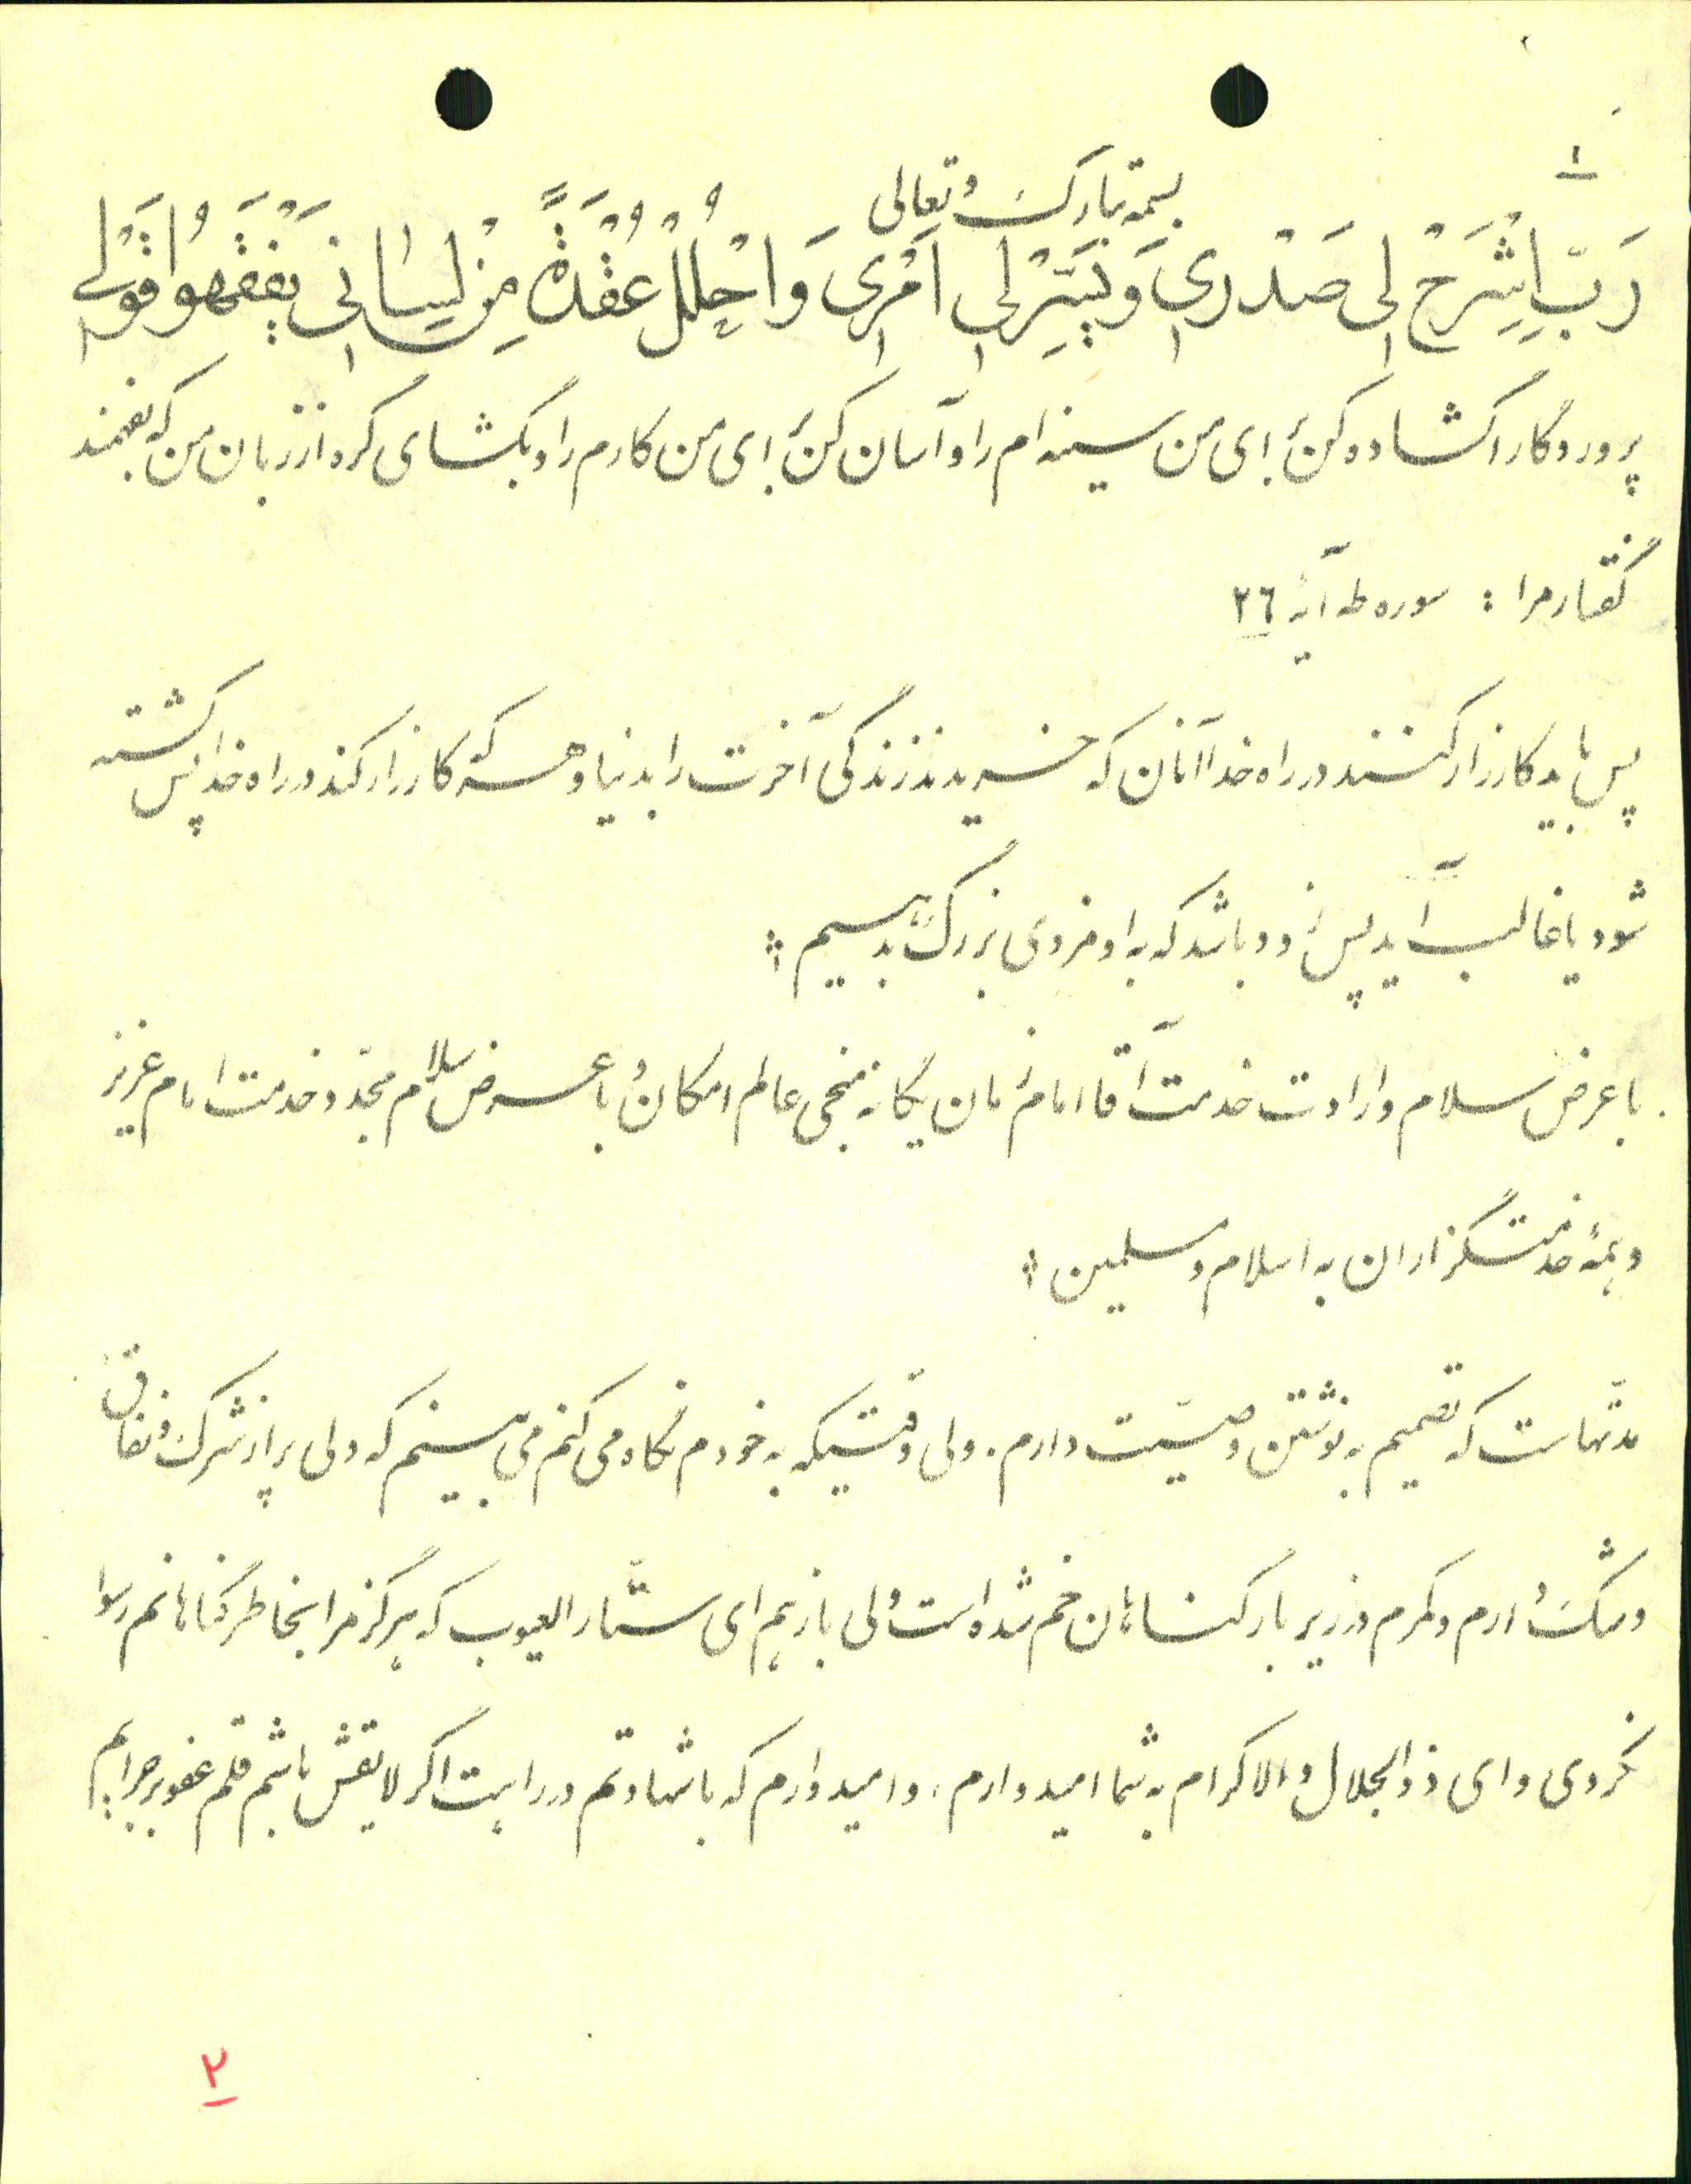 ۱
بسمه تبارک و تعالی
رَبِّ اِشْرَحْ لی صَدْری وَ یَسِّرْلی اَمْری وَ احْلُلْ عُقْدَةً مِنْ لِسانی یَفْقَهُوا قَوْلی
پروردگارا گشاده کن برای من سینه ام را و آسان کن برای من کارم را و بگشای گره از زبان من که بفهمند
گفتار مرا : سوره طه آیهٔ ۲۶
پس باید کارزار کنند در راه خدا آنان که خریدند زندگی آخرت را بدنیا و هر که کارزار کند در راه خدا پس کشته
شود یا غالب آید پس زود باشد که به او مزدی بزرگ بدهیم :
با عرض سلام و ارادت خدمت آقا امام زمان یگانه منجی عالم امکان و با عرض سلام مجدد خدمت امام عزیز
و همهٔ خدمتگزاران به اسلام و مسلمین :
مدّتهاست که تصمیم به نوشتن وصیّیت دارم . ولی وقتیکه به خودم نگاه می کنم می بینم که دلی پر از شرک و نفاق
و شک دارم و کمرم در زیر بار گناهان خم شده است ولی بازهم ای ستّار العیوب که هرگز مرا بخاطر گناهانم رسوا
نکردی و ای ذوالجلال و الاکرام به شما امیدوارم ، و امیدوارم که با شهادتم در راهت اگر لایقش باشم قلم عفو بر جرایم
۲